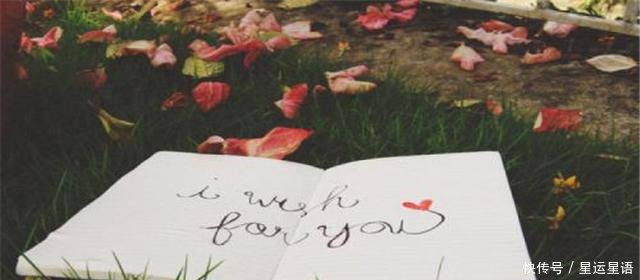 i wish
for you
快传号 / 星运星语